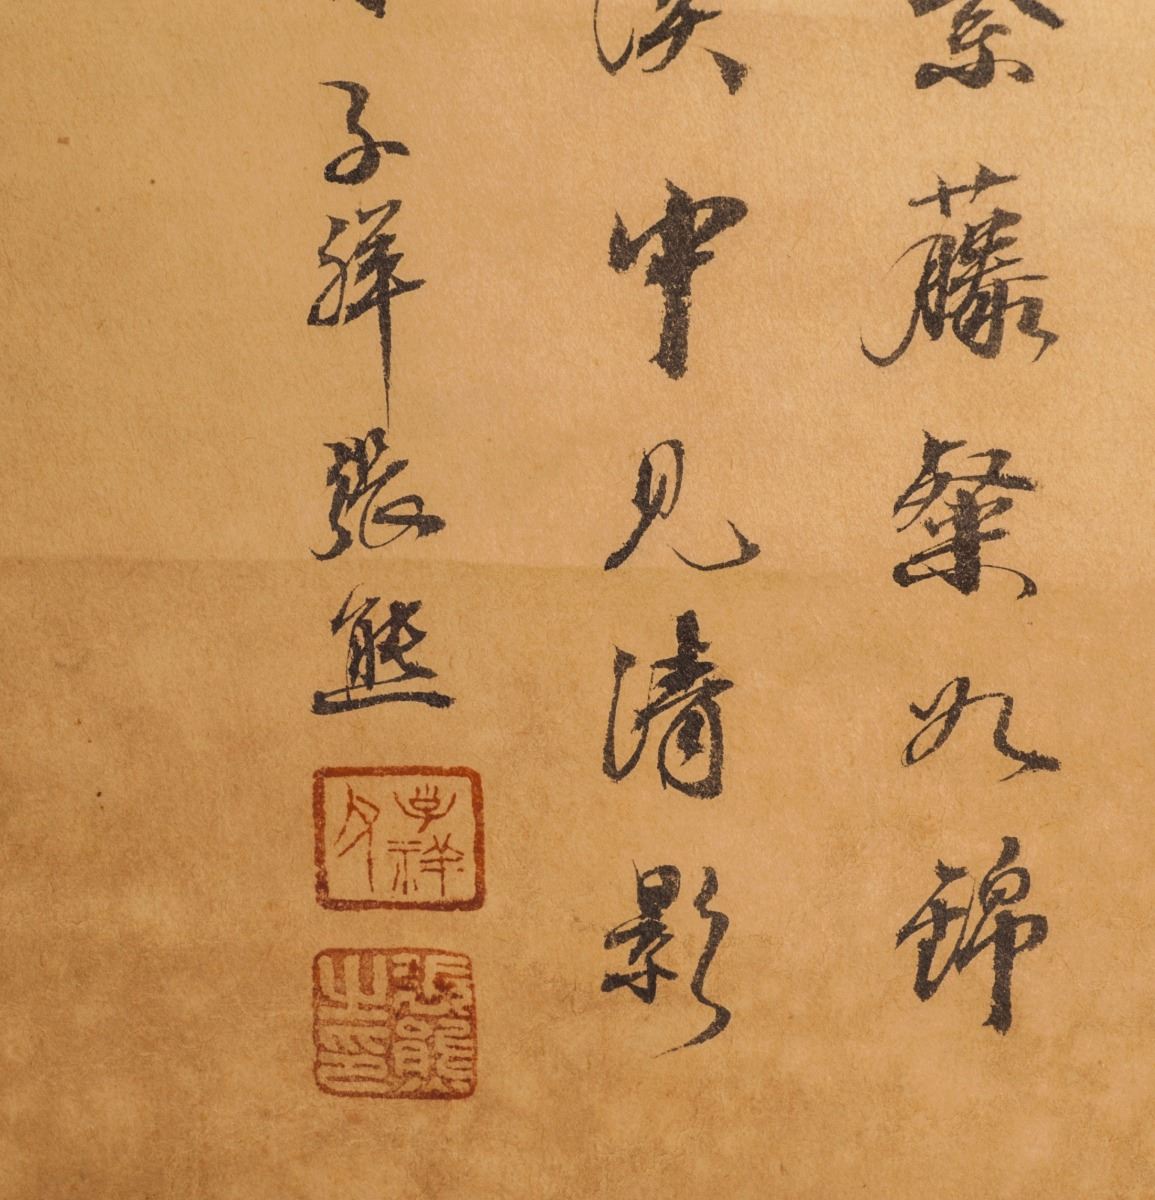 紫藤粲如錦
溪中見清影
子祥張熊
子祥
張熊之印